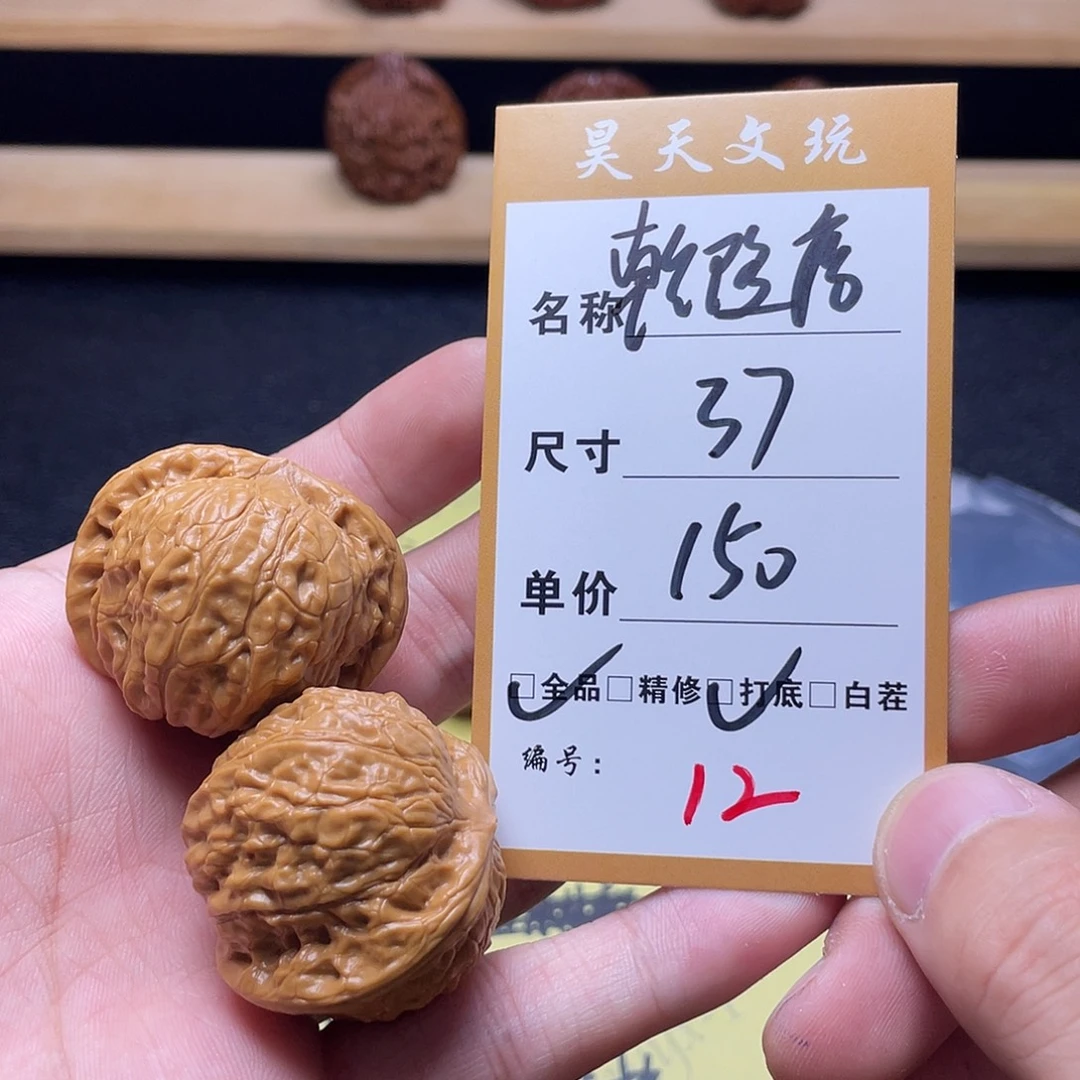 昊天文玩
名称 乾隆房
尺寸 37
单价 150
□全品□精修□打底□白茬
编号: 12